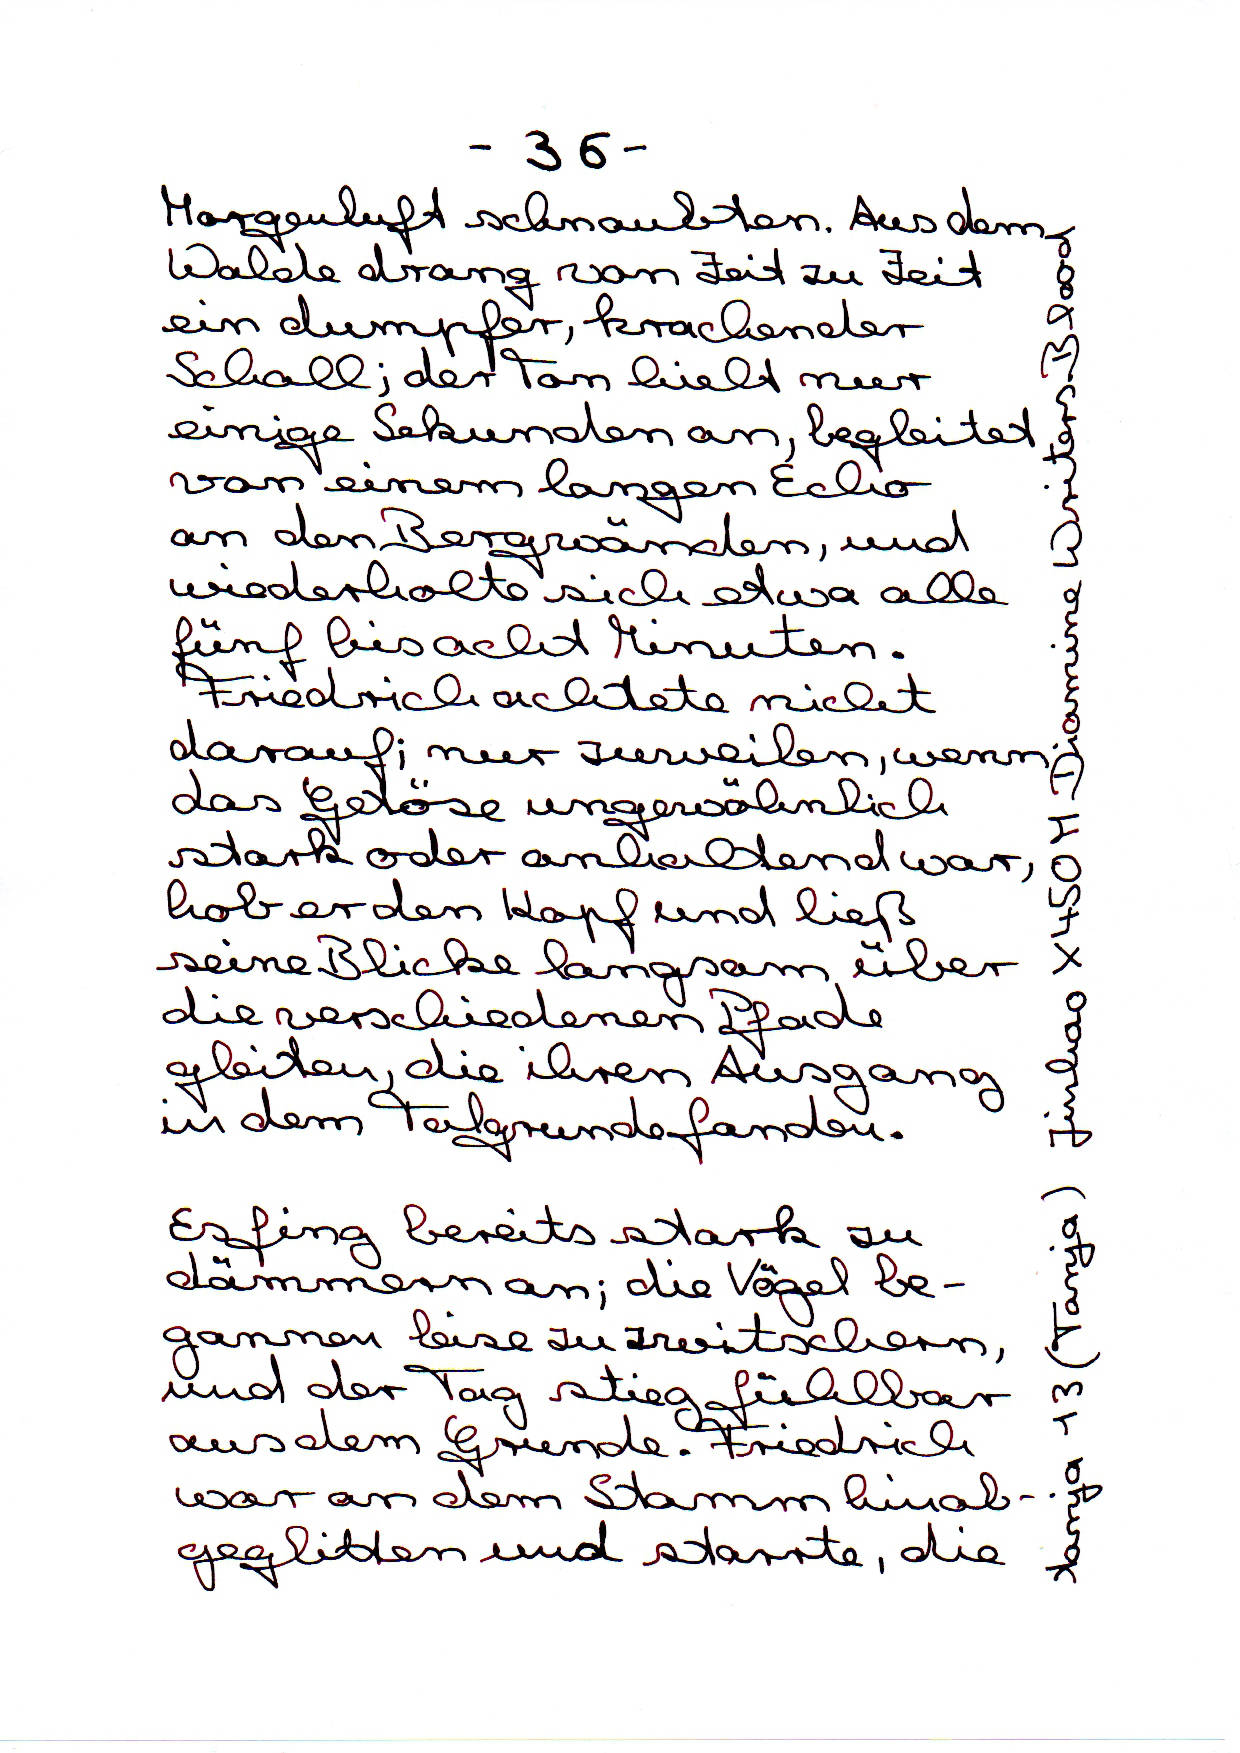 - 36 -
Morgenluft schnaubten. Aus dem
Walde drang von Zeit zu Zeit
ein dumpfer, krachender
Schall; der Ton hielt nur
einige Sekunden an, begleitet
von einem langen Echo
an den Bergwänden, und
wiederholte sich etwa alle
fünf bis acht Minuten.
Friedrich achtete nicht
darauf; nur zuweilen, wenn
das Getöse ungewöhnlich
stark oder anhaltend war,
hob er den Kopf und ließ
seine Blicke langsam über
die verschiedenen Pfade
gleiten, die ihren Ausgang
in dem Talgrunde fanden.
Es fing bereits stark zu
dämmern an; die Vögel be-
gannen leise zu zwitschern,
und der Tag stieg fühlbar
aus dem Grunde. Friedrich
war an dem Stamm hinab-
geglitten und starrte, die
tanja -13 (Tanja) Jinhao X450 M Diamine Writers Blood